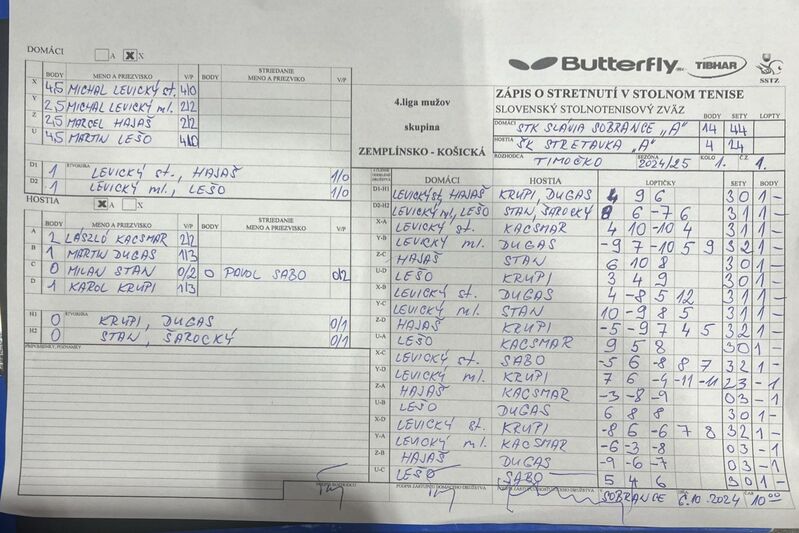 DOMÁCI A X X
BODY MENO A PRIEZVISKO V/P BODY STRIEDANIE MENO A PRIEZVISKO V/P
X 4,5 MICHAL LEVICKÝ st. 4/0
Y 2,5 MICHAL LEVICKÝ ml. 2/2
Z 2,5 MARCEL HAJAŠ 2/2
U 4,5 MARTIN LEŠO 4/0
D1 1 ŠTVORHRA LEVICKÝ st., HAJAŠ 1/0
D2 1 LEVICKÝ ml., LEŠO 1/0
HOSTIA A X X
BODY MENO A PRIEZVISKO V/P BODY STRIEDANIE MENO A PRIEZVISKO V/P
A 2 LÁSZLÓ KACSMAR 2/2
B 1 MARTIN DUGAS 1/3
C 0 MILAN STAN 0/2 0 PAVOL SABO 0/2
D 1 KAROL KRUPI 1/3
H1 0 ŠTVORHRA KRUPI, DUGAS 0/1
H2 0 STAN, ŠAROCKÝ 0/1
PRIPOMIENKY, POZNÁMKY
PODPIS ROZHODCU
Butterfly TIBHAR SSTZ
4.liga mužov
skupina
ZEMPLÍNSKO - KOŠICKÁ
ZÁPIS O STRETNUTÍ V STOLNOM TENISE
SLOVENSKÝ STOLNOTENISOVÝ ZVÄZ BODY SETY LOPTY
DOMÁCI STK SLÁVIA SOBRANCE „A" 14 44
HOSTIA ŠK STRETAVKA „A" 4 24
ROZHODCA TIMOČKO SEZÓNA 2024/25 KOLO 1. Č.Z. 1.
DOMÁCI HOSTIA LOPTIČKY SETY BODY
D1-H1 LEVICKÝ st, HAJAŠ KRUPI, DUGAS 4 9 6 3 0 1 -
D2-H2 LEVICKÝ ml, LEŠO STAN, ŠAROCKÝ 8 6 -7 6 3 1 1 -
X-A LEVICKÝ st. KACSMAR 4 10 -10 4 3 1 1 -
Y-B LEVICKÝ ml. DUGAS -9 7 -10 5 9 3 2 1 -
Z-C HAJAŠ STAN 6 10 8 3 0 1 -
U-D LEŠO KRUPI 3 4 9 3 0 1 -
X-B LEVICKÝ st. DUGAS 4 -8 5 12 3 1 1 -
Y-C LEVICKÝ ml. STAN 10 -9 8 5 3 1 1 -
Z-D HAJAŠ KRUPI -5 -9 7 4 5 3 2 1 -
U-A LEŠO KACSMAR 9 5 8 3 0 1 -
X-C LEVICKÝ st. SABO -5 6 -8 8 7 3 2 1 -
Y-D LEVICKÝ ml. KRUPI 7 6 -4 -11 -11 2 3 - 1
Z-A HAJAŠ KACSMAR -3 -8 -9 0 3 - 1
U-B LEŠO DUGAS 6 8 8 3 0 1 -
X-D LEVICKÝ st. KRUPI -8 6 -6 7 8 3 2 1 -
Y-A LEVICKÝ ml. KACSMAR -6 -3 -8 0 3 - 1
Z-B HAJAŠ DUGAS -9 -6 -7 0 3 - 1
U-C LEŠO SABO 5 4 6 3 0 1 -
PODPIS ZÁSTUPCU DOMÁCEHO DRUŽSTVA
SOBRANCE 6.10.2024 10 00